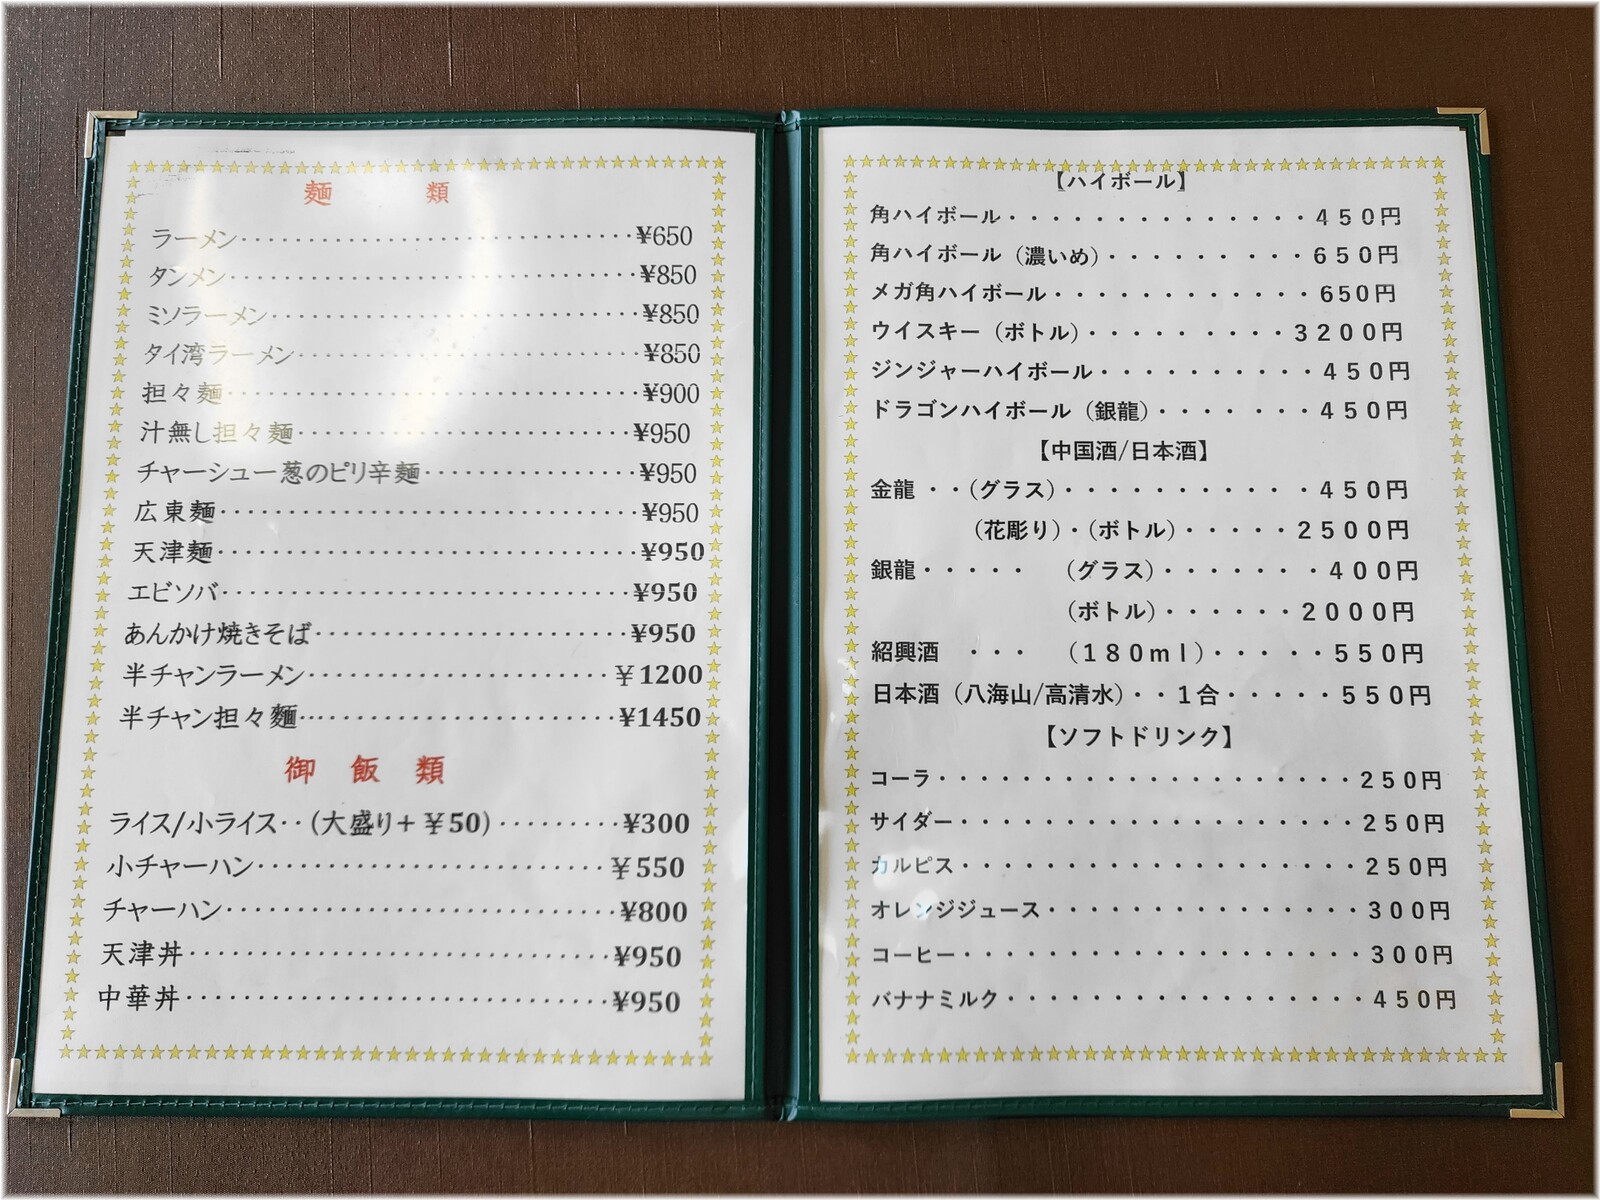 麺 類
ラーメン・・・・・・・・・・・・・・・・・・・・・・・・・・・・・・¥650
タンメン・・・・・・・・・・・・・・・・・・・・・・・・・・・・・・¥850
ミソラーメン・・・・・・・・・・・・・・・・・・・・・・・・・・・・¥850
タイ湾ラーメン・・・・・・・・・・・・・・・・・・・・・・・・・・¥850
担々麺・・・・・・・・・・・・・・・・・・・・・・・・・・・・・・・¥900
汁無し担々麺・・・・・・・・・・・・・・・・・・・・・・・・・¥950
チャーシュー葱のピリ辛麺・・・・・・・・・・・・・・・・¥950
広東麺・・・・・・・・・・・・・・・・・・・・・・・・・・・・・・・¥950
天津麺・・・・・・・・・・・・・・・・・・・・・・・・・・・・・・・¥950
エビソバ・・・・・・・・・・・・・・・・・・・・・・・・・・・・・・¥950
あんかけ焼きそば・・・・・・・・・・・・・・・・・・・・・・・¥950
半チャンラーメン・・・・・・・・・・・・・・・・・・・・・・¥1200
半チャン担々麺・・・・・・・・・・・・・・・・・・・・・・・・¥1450
御 飯 類
ライス/小ライス・・(大盛り+¥50)・・・・・・・・・¥300
小チャーハン・・・・・・・・・・・・・・・・・・・・・・・・・・¥550
チャーハン・・・・・・・・・・・・・・・・・・・・・・・・・・・・・¥800
天津丼・・・・・・・・・・・・・・・・・・・・・・・・・・・・・・・¥950
中華丼・・・・・・・・・・・・・・・・・・・・・・・・・・・・・・・¥950
【ハイボール】
角ハイボール・・・・・・・・・・・・・・450円
角ハイボール(濃いめ)・・・・・・・・・650円
メガ角ハイボール・・・・・・・・・・・・650円
ウイスキー(ボトル)・・・・・・・・・3200円
ジンジャーハイボール・・・・・・・・・・450円
ドラゴンハイボール(銀龍)・・・・・・・450円
【中国酒/日本酒】
金龍・・(グラス)・・・・・・・・・・・450円
(花彫り)・(ボトル)・・・・・2500円
銀龍・・・・・ (グラス)・・・・・・・400円
(ボトル)・・・・・・2000円
紹興酒 ・・・ (180ml)・・・・・550円
日本酒(八海山/高清水)・・1合・・・・・550円
【ソフトドリンク】
コーラ・・・・・・・・・・・・・・・・・・・250円
サイダー・・・・・・・・・・・・・・・・・・250円
カルピス・・・・・・・・・・・・・・・・・・250円
オレンジジュース・・・・・・・・・・・・・・300円
コーヒー・・・・・・・・・・・・・・・・・・300円
バナナミルク・・・・・・・・・・・・・・・・450円